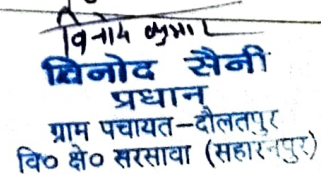 विनोद कुमार
विनोद सैनी
प्रधान
ग्राम पचायत-दौलतपुर
वि० क्षे० सरसावा (सहारनपुर)